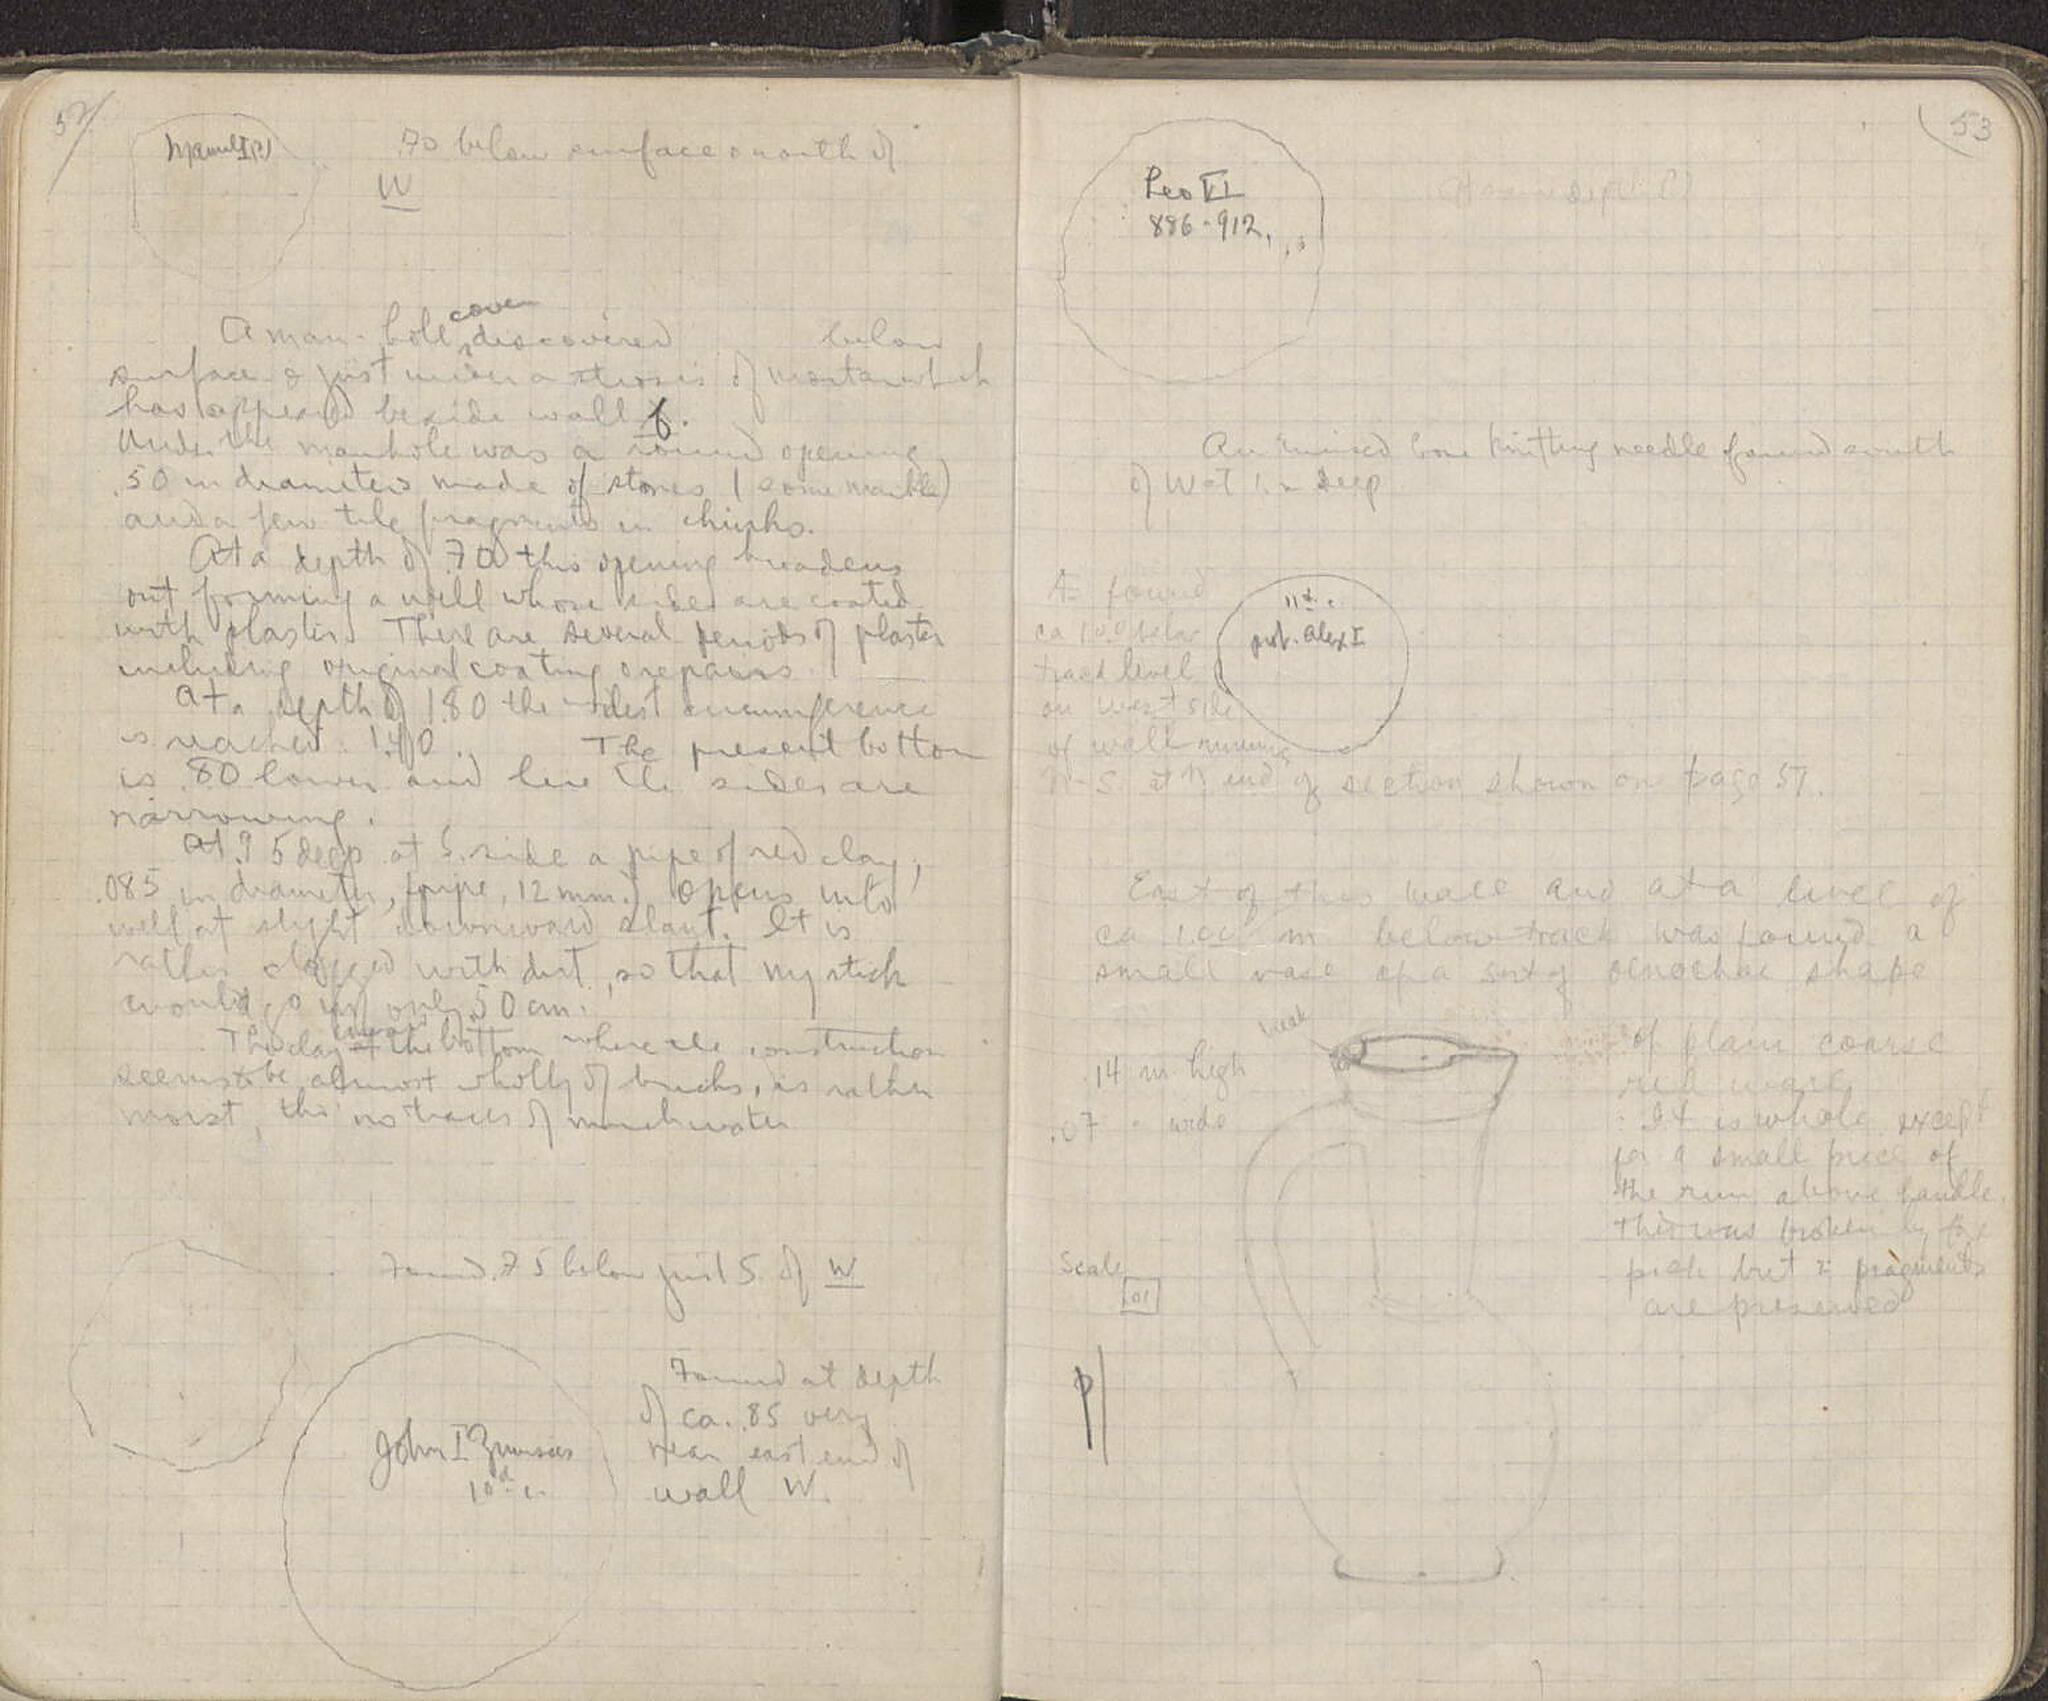 52
Manuel I (?)
.70 below surface on north of
W
cover
A man-hole discovered below
surface & just under a strosis of mortar which
has appeared beside wall 6.
Under the manhole was a round opening
.50 in diameter made of stones (some marble)
and a few tile fragments in chinks.
At a depth of .70 this opening broadens
out forming a well whose sides are coated
with plaster. There are several periods of plaster
including original coating & repairs.
At a depth of 1.80 the widest circumference
is reached: 1.40. The present bottom
is .80 lower and here the sides are
narrowing.
At .95 deep at S. side a pipe of red clay,
.085 in diameter, (pipe, 12 mm.) opens into
well at slight downward slant. It is
rather clogged with dirt, so that my stick
would go up only 50 cm.
The clay at the bottom where the construction
seems to be almost wholly of bricks, is rather
moist, tho' no traces of much water
Found .75 below just S. of W
John I Zimisces
10th c.
Found at depth
of ca. .85 very
near east end of
wall W.
53
Leo VI
886-912
An incised bone knitting needle found south
of W at 1. deep
As found
ca 1.00 below
track level
on west side
of wall running
N-S. at N end of section shown on page 51.
11th c.
prob. Alex I
East of this wall and at a level of
ca 1.00 m below track was found a
small vase of a sort of oenochoe shape
break
of plain coarse
red ware
.14 m. high
.07 " wide
It is whole except
for a small piece of
the rim above handle.
This was broken by the
pick but 2 fragments
are preserved
Scale
.01
P